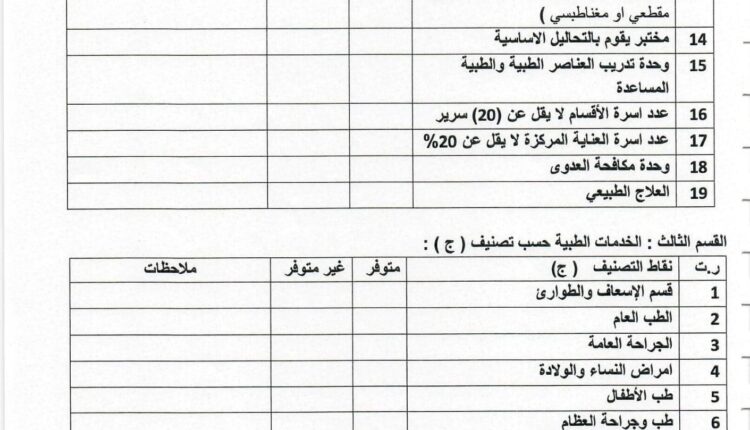 مقطعي او مغناطيسي )
14 مختبر يقوم بالتحاليل الاساسية
15 وحدة تدريب العناصر الطبية والطبية
المساعدة
16 عدد اسرة الأقسام لا يقل عن (20) سرير
17 عدد اسرة العناية المركزة لا يقل عن 20%
18 وحدة مكافحة العدوى
19 العلاج الطبيعي
القسم الثالث : الخدمات الطبية حسب تصنيف ( ج ) :
ر.ت نقاط التصنيف ( ج) متوفر غير متوفر ملاحظات
1 قسم الإسعاف والطوارئ
2 الطب العام
3 الجراحة العامة
4 امراض النساء والولادة
5 طب الأطفال
6 طب وجراحة العظام